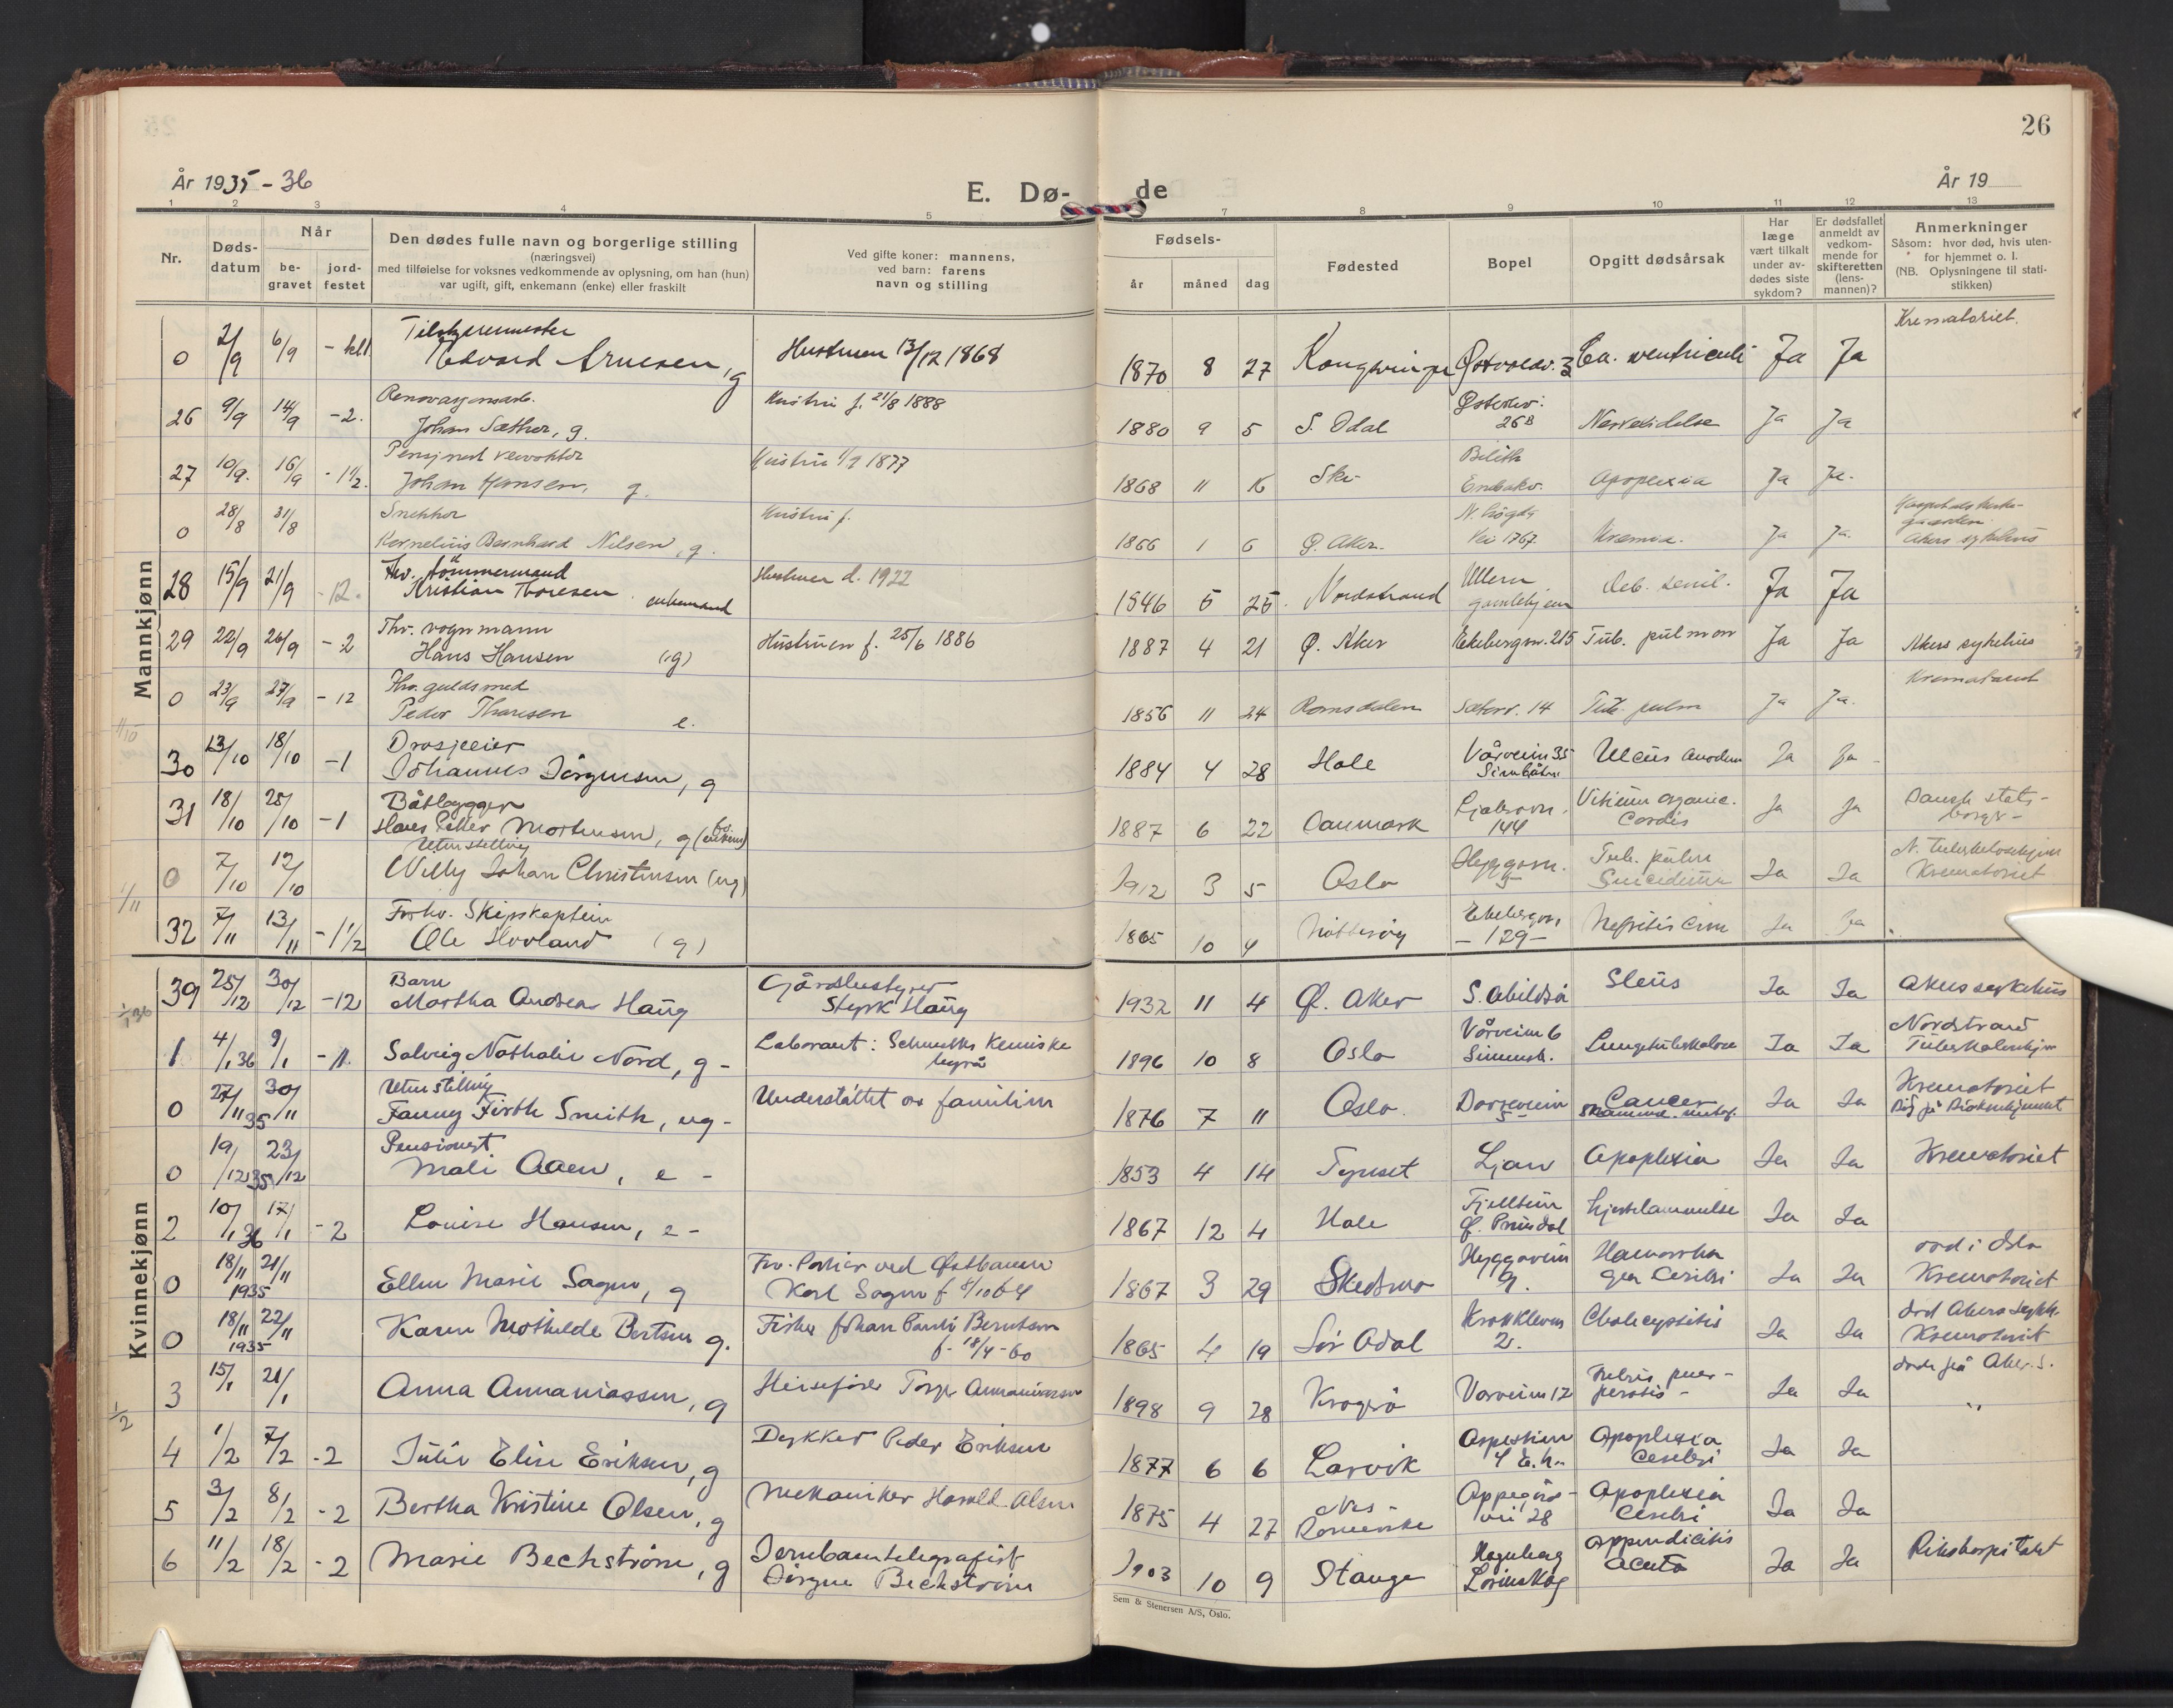 26
År 1935 - 36
E. Dø-
de
År 19
1 2 3 4 5 7 8 9 10 11 12 13
Nr.
Døds-
datum
Når
be-
gravet
jord-
festet
Den dødes fulle navn og borgerlige stilling
(næringsvei)
med tilføielse for voksnes vedkommende av oplysning, om han (hun)
var ugift, gift, enkemann (enke) eller fraskilt
Ved gifte koner: mannens,
ved barn: farens
navn og stilling
Fødsels-
år måned dag
Fødested
Bopel
Opgitt dødsårsak
Har
læge
vært tilkalt
under av-
dødes siste
sykdom?
Er dødsfallet
anmeldt av
vedkom-
mende for
skifteretten
(lens-
mannen)?
Anmerkninger
Såsom: hvor død, hvis uten-
for hjemmet o. l.
(NB. Oplysningene til stati-
stikken)
Mannkjønn
Krematoriet.
0 2/9 6/9 Edvard Arnesen, g Hustruen 13/12 1868 1870 8 27 Ca. ventriculi Ja Ja
26 9/9 14/9 -2. Johan Sæther, g. Hustru f. 21/8 1888 1880 9 5 S. Odal 26B Ja Ja
27 10/9. 16/9 -1½. Johan Hansen, g. 1877 1868 11 16 Ski Apoplexia Ja Ja.
Snekker
0 28/8 31/8 Kornelius Bernhard Nilsen, g. Hustru f. 1866 1 6 Ø. Aker. Vei 1767. Uremia. Ja Ja. Akers sykehus
Fhv. tømmermand
28 15/9 21/9 -12. Kristian Thoresen enkemand Hustruen d. 1922 1846 5 25. Nordstrand Ullern gamlehjem Deb. senil. Ja Ja
Fhv. vognmann
29 22/9 26/9 -2 Hans Hansen (g) Hustruen f. 25/6 1886 1887 4 21 Ø. Aker Ekebergsv. 215 Tub. pulmon Ja Ja Akers sykehus
Fhv. guldsmed Krematoriet
0 23/9 27/9 -12 Peder Thoresen e. 1856 11 24 Romsdalen Sæterv. 14 Tub. pulm Ja Ja.
Drosjeeier
30 13/10 18/10 -1 Johannes Jørgensen, g 1884 4 28 Hole Vårveien 35 Ulcus Ja Ja
Båtbygger
31 18/10 25/10 -1 Hans Petter Mortensen, g 1887 6 22 Danmark 144 Vitium organic. Cordis Ja Ja Dansk stats-
borger
Uten stilling
0 7/10 12/10 Willy Johan Christensen (ug) 1912 3 5 Oslo 5 Tub. pulm Suicidium Ja Ja Krematoriet
Forhv. Skipskaptein
32 7/11 13/11 -1½ Ole Hovland (g) 1865 10 4 Nøtterøy Ekebergsv. -129- Ja Ja
Kvinnekjønn
Barn
39 25/12 30/12 -12 Martha Andrea Haug Gårdbestyrer Styrk Haug 1932 11 4 Ø. Aker S. Abildsø Ileus Ja Ja Akers sykehus
1 4/1 36 9/1 -11. Solveig Nathalie Nord, g- Laborant: Schmelks kemiske byrå 1896 10 8 Oslo Vårveien 6 Lungetuberkulose Ja Ja Nordstrand
Tuberkulosehjem
Uten stilling
0 27/11 35 30/11 Fanny Firth Smith, ug- Understøttet av familien 1876 7 11 Oslo. 5 Cancer Ja Ja Krematoriet
Pensionert
0 19/12 35 23/12 Mali Aaen, e - 1853 4 14 Tynset Ljan Apoplexia Ja Ja Krematoriet
2 10/1 36 17/1 -2 Louise Hansen, e- 1867 12 4 Hole Fjellheim Ø. Prinsdal hjertelammelse Ja Ja
0 18/11 21/11 1935 Ellen Marie Sagen, g Fhv. Portier ved Østbanen
Karl Sagen f 8/10 64 1867 3 29 Skedsmo Heggeveien 9. Cerebri Ja Ja død i Oslo
Krematoriet
0 18/11 22/11 1935 Karen Mathilde Berntsen g. Fisker Johan Berntsen
f. 18/4-60 1865 4 19 Sør Odal 2. Cholecystitis Ja Ja død Akers sykh.
Krematoriet
3 15/1 21/1 Anna Annaniassen, g Heisefører Torger Annaniassen 1898 9 28 Kragerø Vårveien 12 Febris puer-
peralis - Ja Ja døde på Aker s.
4 1/2 7/2 -2 Julie Elise Eriksen, g Dykker Peder Eriksen 1877 6 6 Larvik Apoplexia
Cerebri Ja Ja
5 3/2 8/2 -2 Bertha Kristine Olsen, g Mekaniker Harald Olsen 1875 4 27 Nes -
Romerike vei 28 Apoplexia
Cerebri Ja Ja
6 11/2 18/2 -2 Marie Bechstrøm, g Jernbanetelegrafist
Jørgen Bechstrøm 1903 10 9 Stange Lørenskog Appendicitis
acuta Ja Ja Rikshospitalet
Sem & Stenersen A/S, Oslo.